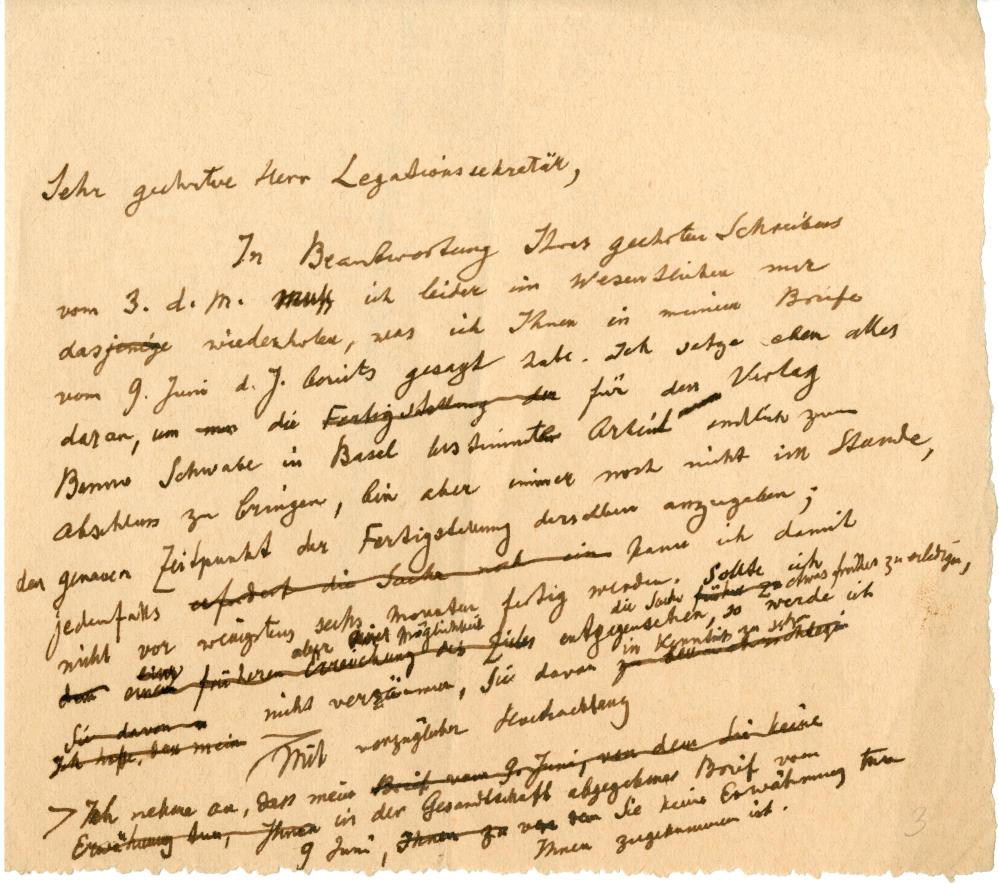 Sehr geehrter Herr Legationssekretär,
In Beantwortung Ihres geehrten Schreibens
vom 3. d. M. muss ich leider im Wesentlichen nur
dasjenige wiederholen, was ich Ihnen in meinem Briefe
vom 9. Juni d. J. bereits gesagt habe. Ich setze eben alles
daran, um die Fertigstellung der für den Verlag
Benno Schwabe in Basel bestimmte Arbeit endlich zum
Abschluss zu bringen, bin aber immer noch nicht im Stande,
den genauen Zeitpunkt der Fertigstellung derselben anzugeben;
jedenfalls erfordert die Sache noch ein kann ich damit
nicht vor wenigstens sechs Monaten fertig werden. Sollte ich
die Sache früher zu etwas früher zu erledigen,
aber einer Möglichkeit
einer früheren Erreichung des Zieles entgegensehen, so werde ich
in Kenntnis zu setzen
nicht versäumen, Sie davon zu
Sie davon
Ich hoffe, dass mein
Mit vorzüglicher Hochachtung
Ich nehme an, dass mein Brief vom 9. Juni, von dem Sie keine
Erwähnung tun, Ihnen in der Gesandtschaft abgegebener Brief vom
9 Juni, Ihnen zu von dem Sie keine Erwähnung tun
Ihnen zugekommen ist.
3